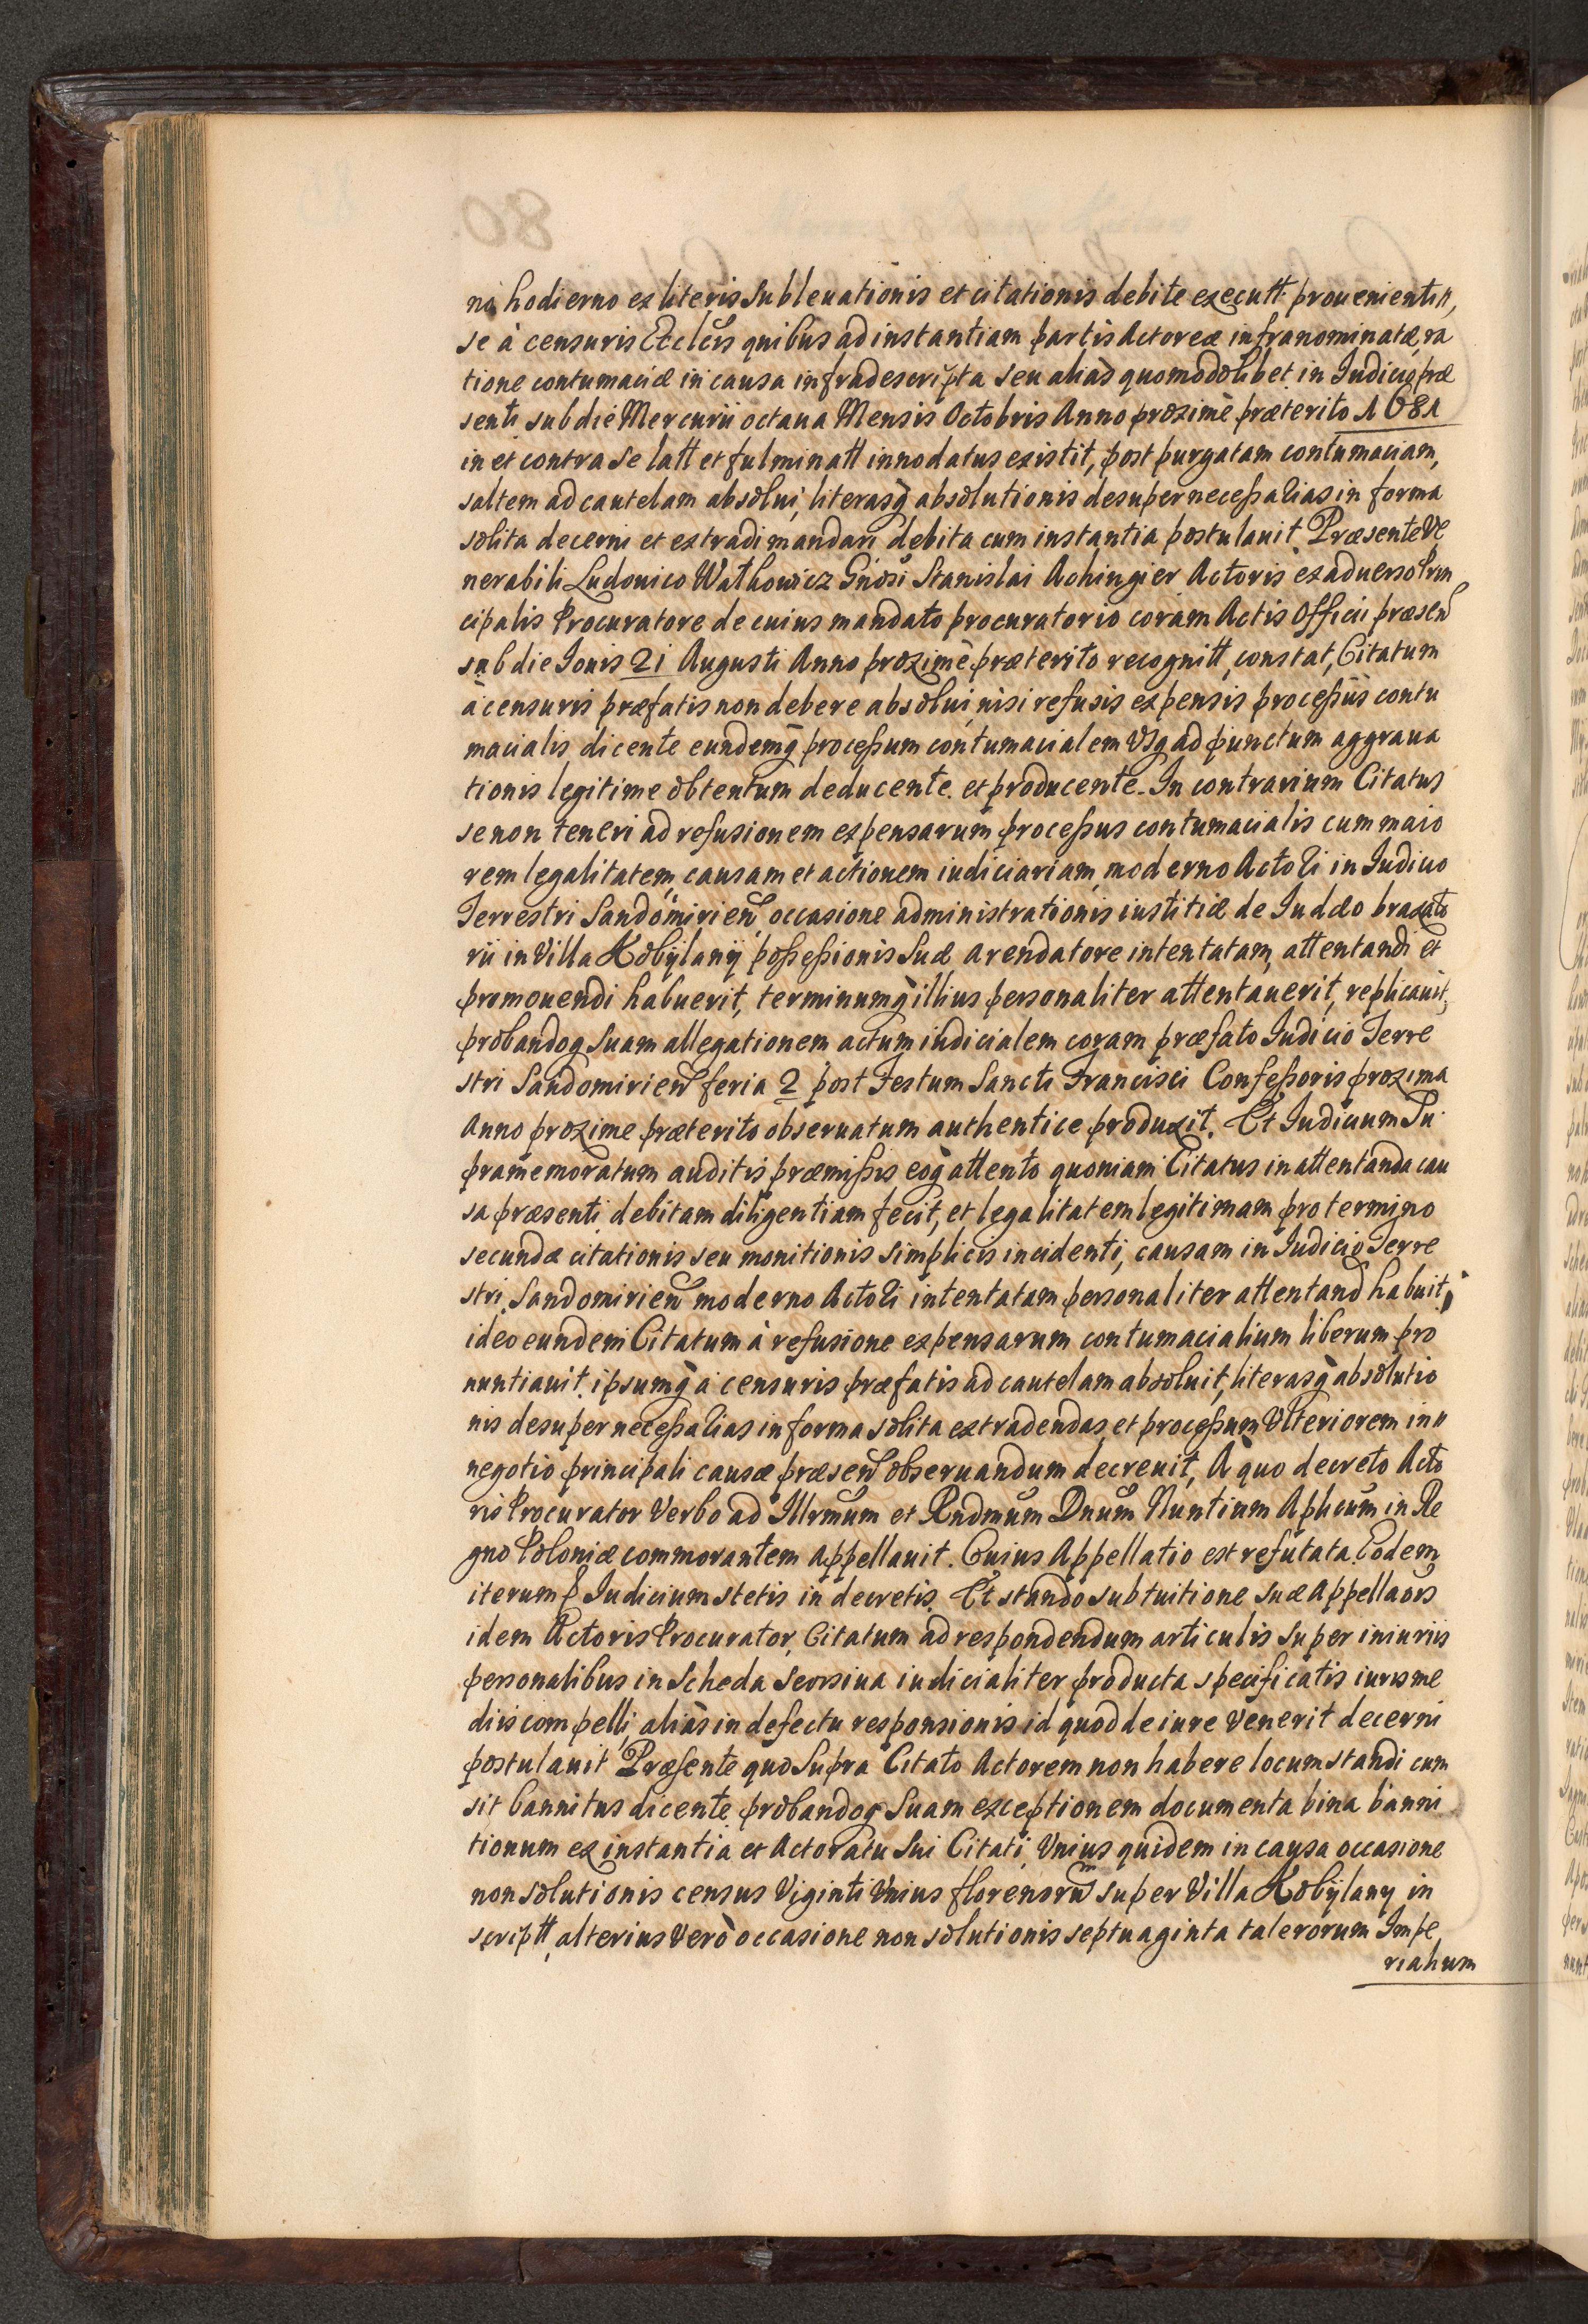 no hodierno ex literis Subleuationis et citationis debite executt prouenientin,
se à censuris Ecclcis quibus ad instantiam partis Actoreæ infranominatæ ra
tione contumaciæ in causa infradescripta seu aliàs quomodolibet in Iudicio præ
senti sub die Mercurii octaua Mensis Octobris Anno proxime præterito 1681
in et contra se latt et fulminatt innodatus existit, post purgatam contumaciam,
saltem ad cautelam absolui, literasq absolutionis desuper neceßarias in forma
solita decerni et extradi mandari debita cum instantia postulauit. Præsente Ve
nerabili Ludouico Wathowicz Gnosi Stanislai Achingier Actoris ex aduerso Prin
cipalis Procuratore de cuius mandato procuratorio coram Actis Officii præsen
sub die Iouis 21 Augusti Anno proxime præterito recognitt, constat, Citatum
à censuris præfatis non debere absolui, nisi refusis expensis proceßus contu
macialis dicente eundemq proceßum contumacialem Vsq ad punctum aggraua
tionis legitime obtentum deducente et producente. In contrarium Citatus
se non teneri ad refusionem expensarum proceßus contumacialis cum maio
rem legalitatem, causam et actionem iudiciariam, moderno Actori in Iudicio
Terrestri Sandomirien occasione administrationis iustitiæ de Iudæo braxato
rii in Villa Kobÿlanÿ poßeßionis Suæ arendatore intentatam, attentandi et
promouendi habuerit, terminumq illius personaliter attentauerit, replicauit,
probandoq Suam allegationem actum iudicialem coram præfato Iudicio Terre
stri Sandomirien feria 2 post Festum Sancti Francisci Confeßoris proxima
Anno proxime præterito obseruatum authentice produxit. Et Iudicium Su
pramemoratum auditis præmißis eoq attento quoniam Citatus in attentanda cau
sa præsenti debitam diligentiam fecit, et legalitatem legitimam pro termino
secundæ citationis seu monitionis simplicis incidenti, causam in Iudicio Terre
stri Sandomirien moderno Actori intentatam personaliter attentand habuit,
ideo eundem Citatum à refusione expensarum contumacialium liberum pro
nuntiauit. ipsumq à censuris præfatis ad cautelam absoluit, literasq absolutio
nis desuper neceßarias in forma solita extradendas, et proceßum Vlteriorem in
negotio principali causæ præsen obseruandum decreuit, A quo decreto Acto
ris Procurator Verbo ad Illrmum et Rndmum Dnum Nuntium Aplicum in Re
gno Poloniæ commorantem appellauit. Cuius Appellatio est refutata. Eodem
iterum p Iudicium stetis in decretis. Et stando sub tuitione suæ Appellaois
idem Actoris Procurator, Citatum ad respondendum articulis super iniuriis
personalibus in Scheda Seorsiua iudicialiter producta specificatis iuris me
diis compelli, aliàs in defectu responsionis id quod de iure Venerit decerni
postulauit Præsente quo Supra Citato Actorem non habere locum standi cum
sit bannitus dicente probandoq Suam exceptionem documenta bina banni
tionum ex instantia et Actoratu Sui Citati, Vnius quidem in causa occasione
non solutionis census Viginti Vnius florenorum super Villa Kobÿlany in
scriptt, alterius Verò occasione non solutionis septuaginta talerorum Impe
rialium